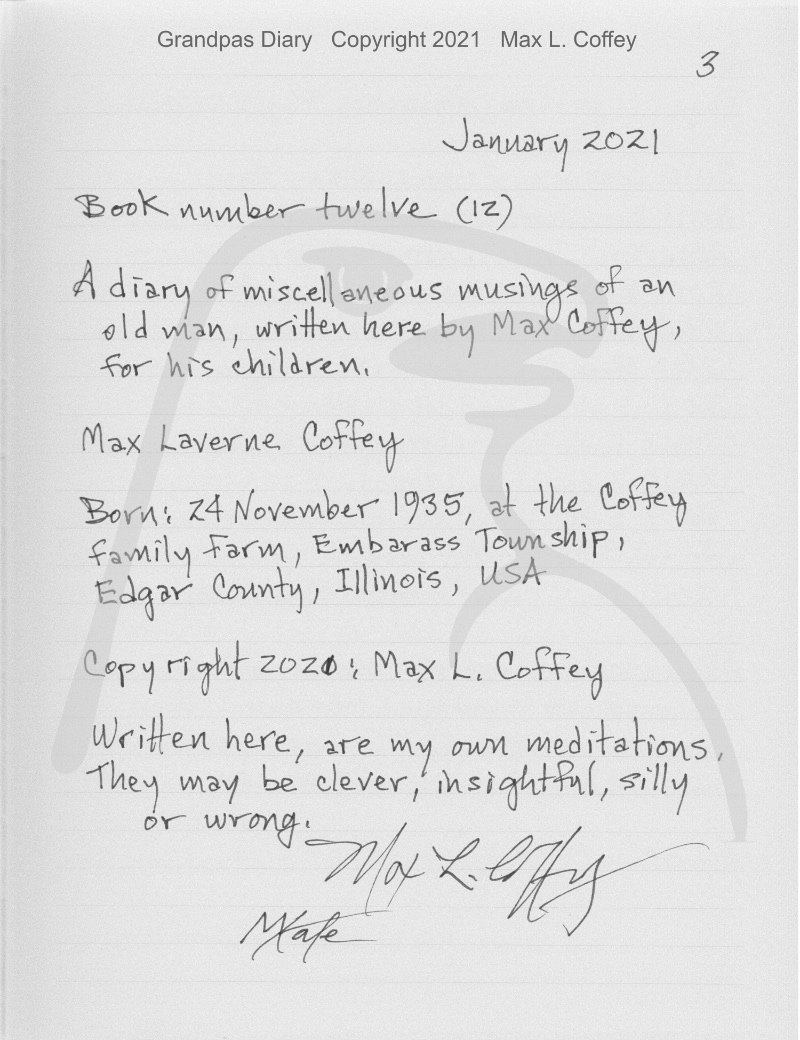 Grandpas Diary Copyright 2021 Max L. Coffey
3
January 2021
Book number twelve (12)
A diary of miscellaneous musings of an
old man, written here by Max Coffey,
for his children.
Max Laverne Coffey
Born: 24 November 1935, at the Coffey
family Farm, Embarass Township,
Edgar County, Illinois, USA
Copyright 2021: Max L. Coffey
Written here, are my own meditations.
They may be clever, insightful, silly
or wrong.
Max L. Coffey